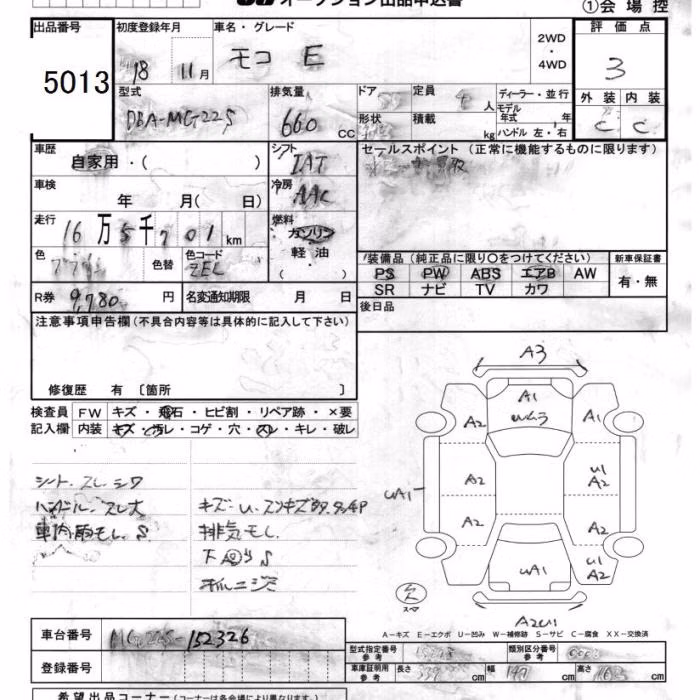 オークション出品申込書
①会場控
出品番号 5013
初度登録年月 18 11月
車名・グレード モコ E
2WD・4WD
評価点 3
外装 C 内装 C
型式 DBA-MG22S
排気量 660 cc
ドア 定員 4人
形状 積載 kg
ディーラー・並行
モデル年式 年
ハンドル 左・右
車歴 自家用・( )
シフト IAT
セールスポイント(正常に機能するものに限ります)
車検 年 月( 日)
冷房 AAC
走行 16万5千701km
燃料 ガソリン 軽油 ( )
色 色替 色コード ZEL
装備品(純正品に限り○をつけてください)
新車保証書
PS PW ABS エアB AW
有・無
SR ナビ TV カワ
R券 9,780円
名変通知期限 月 日
後日品
注意事項申告欄(不具合内容等は具体的に記入して下さい)
修復歴 有〔箇所 〕
検査員 FW キズ・飛石・ヒビ割・リペア跡・×要
記入欄 内装 キズ・汚レ・コゲ・穴・スレ・キレ・破レ
シート.スレ.シワ
ハンドル.スレ大
車内雨モレ.S
キズ-U.
排気モレ
下 S
A3
A1
Uムラ
A2
A1
UA1
A2
U1
A2
A2
A2
UA1
U1
A2
A2U1
欠
スペア
A-キズ E-エクボ U-凹み W-補修跡 S-サビ C-腐食 XX-交換済
車台番号 MG22S-152326
登録番号
型式指定番号 参考 類別区分番号 参考
車庫証明用 参考 長さ 339cm 幅 147cm 高さ cm
希望出品コーナー(コーナーは各会場により異なります)